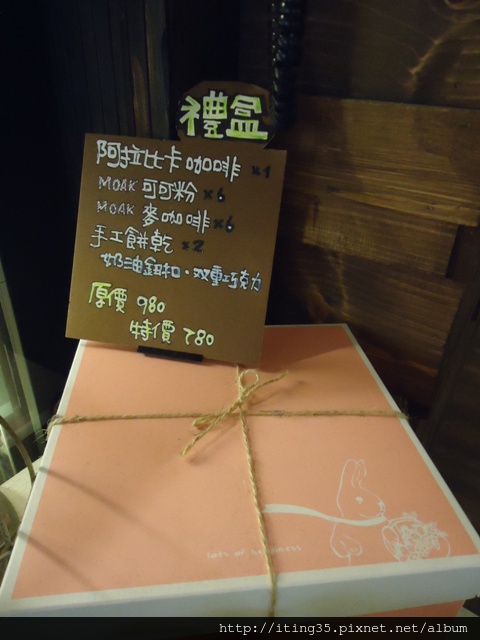 禮盒
阿拉比卡咖啡 x1
MOAK 可可粉 x6
MOAK 麥咖啡 x6
手工餅乾 x2
奶油鈕扣．双重巧克力
原價 980
特價 780
lots of happiness
http://iting35.pixnet.net/album